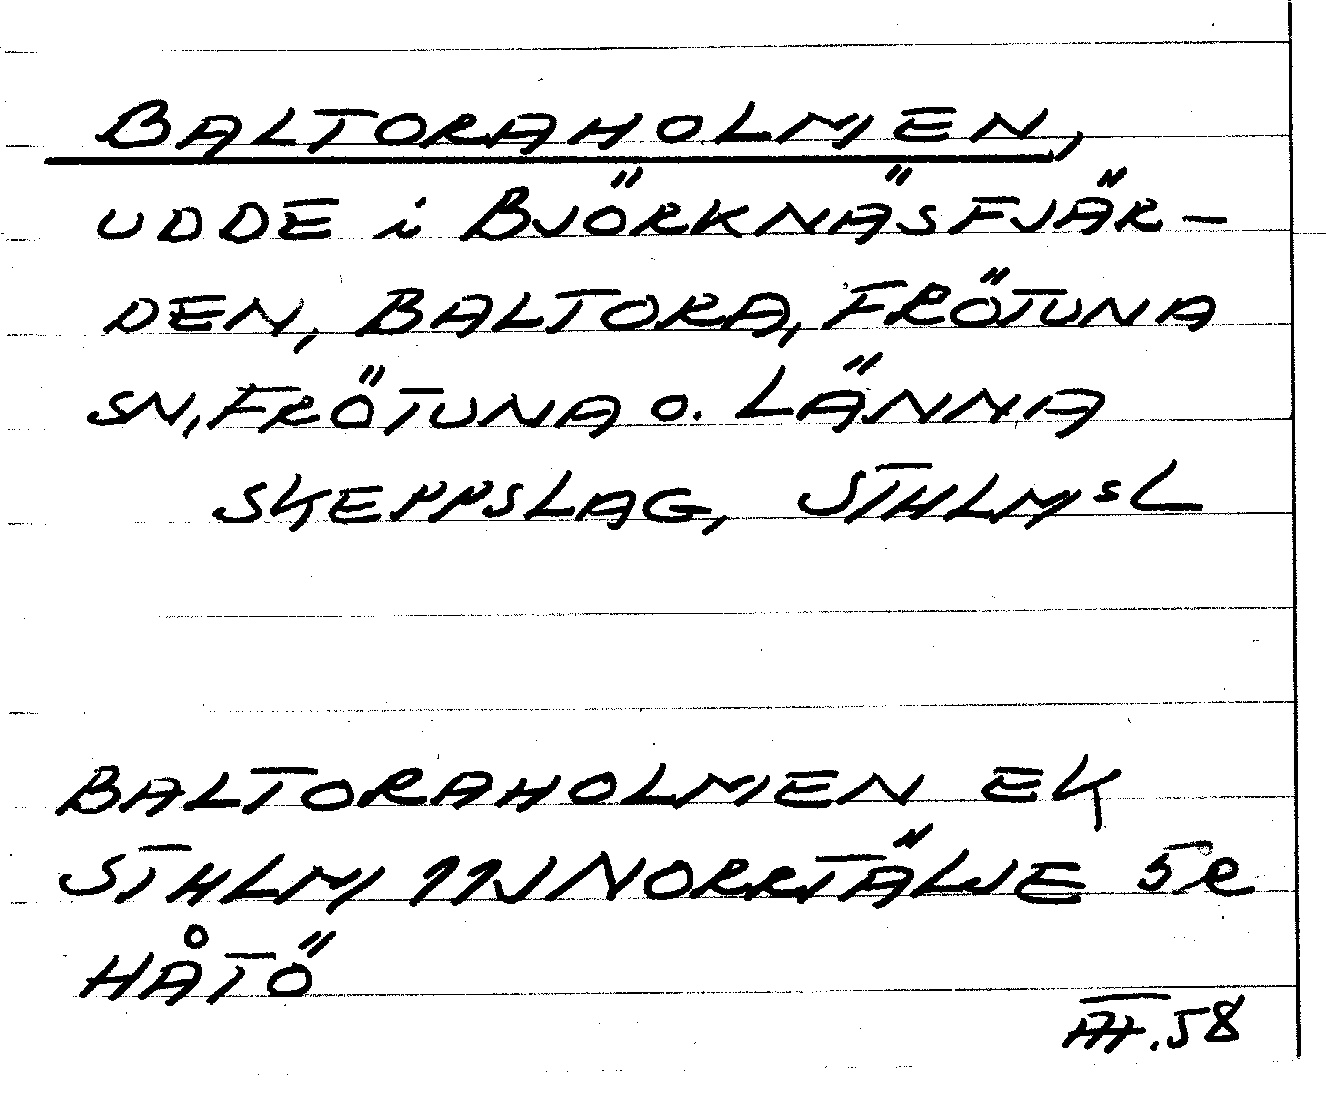 BALTORAHOLMEN,
UDDE i BJÖRKNÄSFJÄR-
DEN, BALTORA, FRÖTUNA
SN, FRÖTUNA O. LÄNNA
SKEPPSLAG, STHLMSL
BALTORAHOLMEN EK
STHLM 11J NORRTÄLJE 5e
HÅTÖ
.58